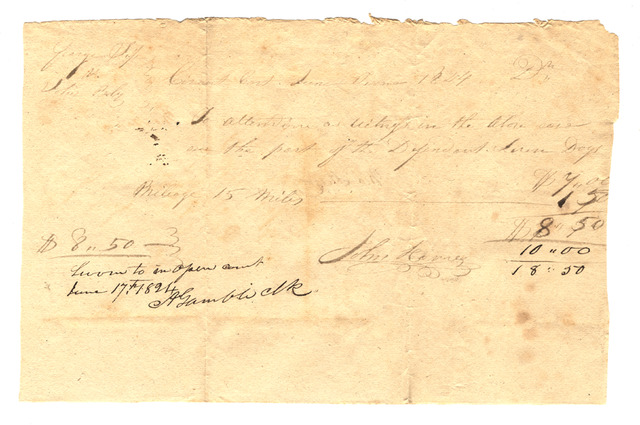 George
vs
John
Circuit Court June Term 1824 Dr.
To attending as witness in the above case
on the part of the Defendant Seven Days
$ 7,, 00
Mileage 15 Miles 1 50
$ 8,, 50
$ 8,, 50
10,, 00
18,, 50
John
Sworn to in open court
June 17th 1824
A Gamble Clk.